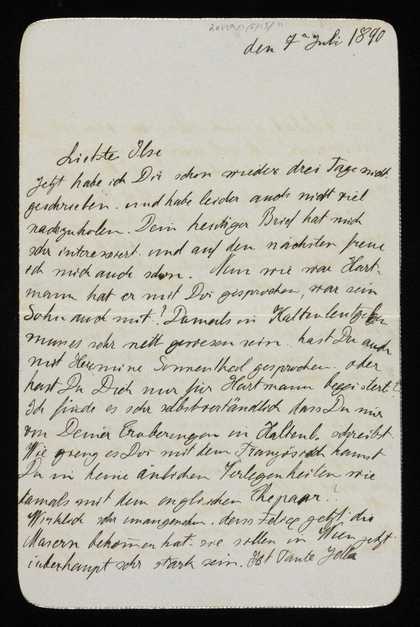 den 7ᵗ Juli 1890
Liebste Ilse
Jetzt habe ich Dir schon wieder drei Tage nicht
geschrieben und habe leider auch nicht viel
nachzuholen. Dein heutiger Brief hat mich
sehr interessiert und auf den nächsten freue
ich mich auch schon. Nun wie war Hart-
mann hat er mit Dir gesprochen, war sein
Sohn auch mit? Damals in Kaltenleutgeben
muss es sehr nett gewesen sein. hast Du auch
mit Hermine Sonnenthal gesprochen, oder
hast Du Dich nur für Hartmann begeistert?
Ich finde es sehr selbstverständlich dass Du mir
von Deinen Eroberungen in Kaltenl. schreibst.
Wie gieng es Dir mit dem Französisch kamst
Du in keine ähnlichen Verlegenheiten wie
damals mit dem englischen Ehepaar?
Wirklich sehr unangenehm, dass Felix jetzt die
Masern bekommen hat. sie sollen in Wien jetzt
überhaupt sehr stark sein. Ist Tante